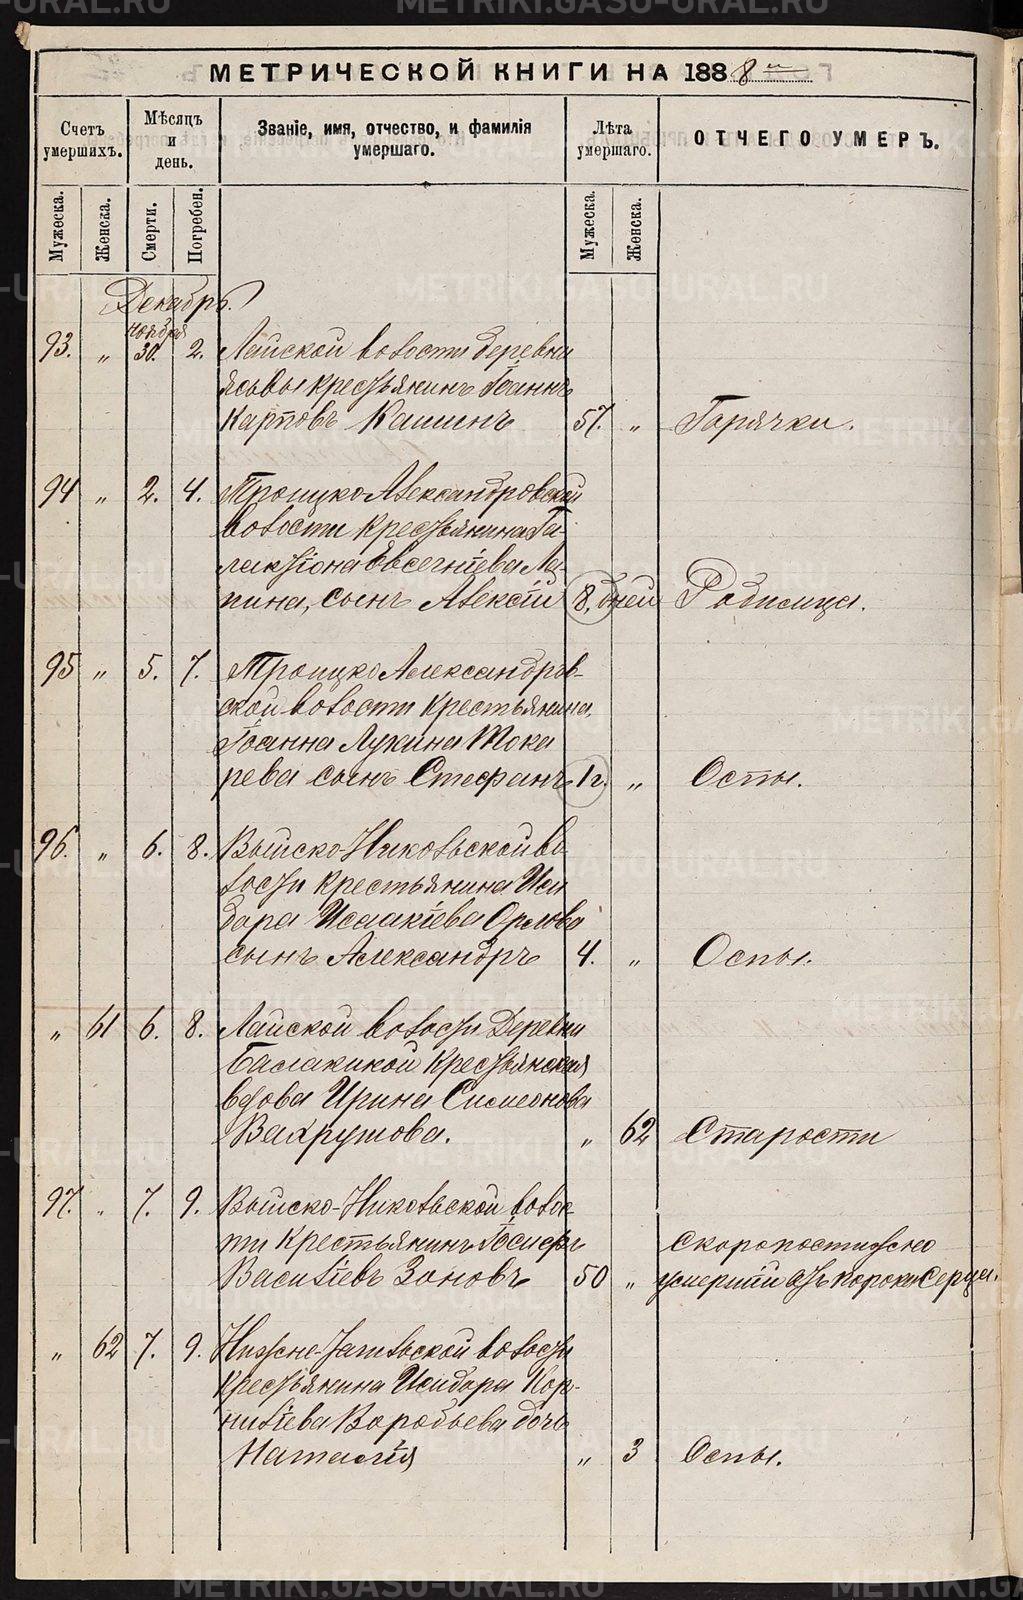 МЕТРИЧЕСКОЙ КНИГИ НА 1888й
Счетъ умершихъ.
Мѣсяцъ и день.
Званіе, имя, отчество, и фамилія умершаго.
Лѣта умершаго.
ОТЧЕГО УМЕРЪ.
Мужеска.
Женска.
Смерти.
Погребен.
Мужеска.
Женска.
Декабрь.
Ноября
93. „ 30. 2. Лайской волости деревни
Ясьвы крестьянинъ Іоаннъ
Карповъ Кашинъ 57. „ Горячки.
94 „ 2. 4. Троицко Александровской
волости крестьянина Га-
лактіона Евсегніева Ла-
пина, сынъ Алексій 8. дней Родимца.
95 „ 5. 7. Троицко Александров-
ской волости крестьянина
Іоанна Лукина Тока
рева сынъ Стефанъ 1 г. „ Оспы.
96. „ 6. 8. Выйско-Никольской во-
лости крестьянина Иси
дора Исаакіева Орлова
сынъ Александръ 4. „ Оспы.
„ 61 6. 8. Лайской волости Деревни
Балакиной Крестьянская
вдова Ирина Симеонова
Вахрушова. „ 62 Старости
97. „ 7. 9. Выйско-Никольской волос-
ти Крестьянинъ Іосифъ
Василіевъ Зоновъ 50 „
Скоропостижно
умершій отъ порока Сердца.
„ 62 7. 9. Нижне-Тагильской волости
Крестьянина Исидора Кор-
нилієва Воробьева дочь
Наталія „ 3 Оспы.
METRIKI.GASU-URAL.RU